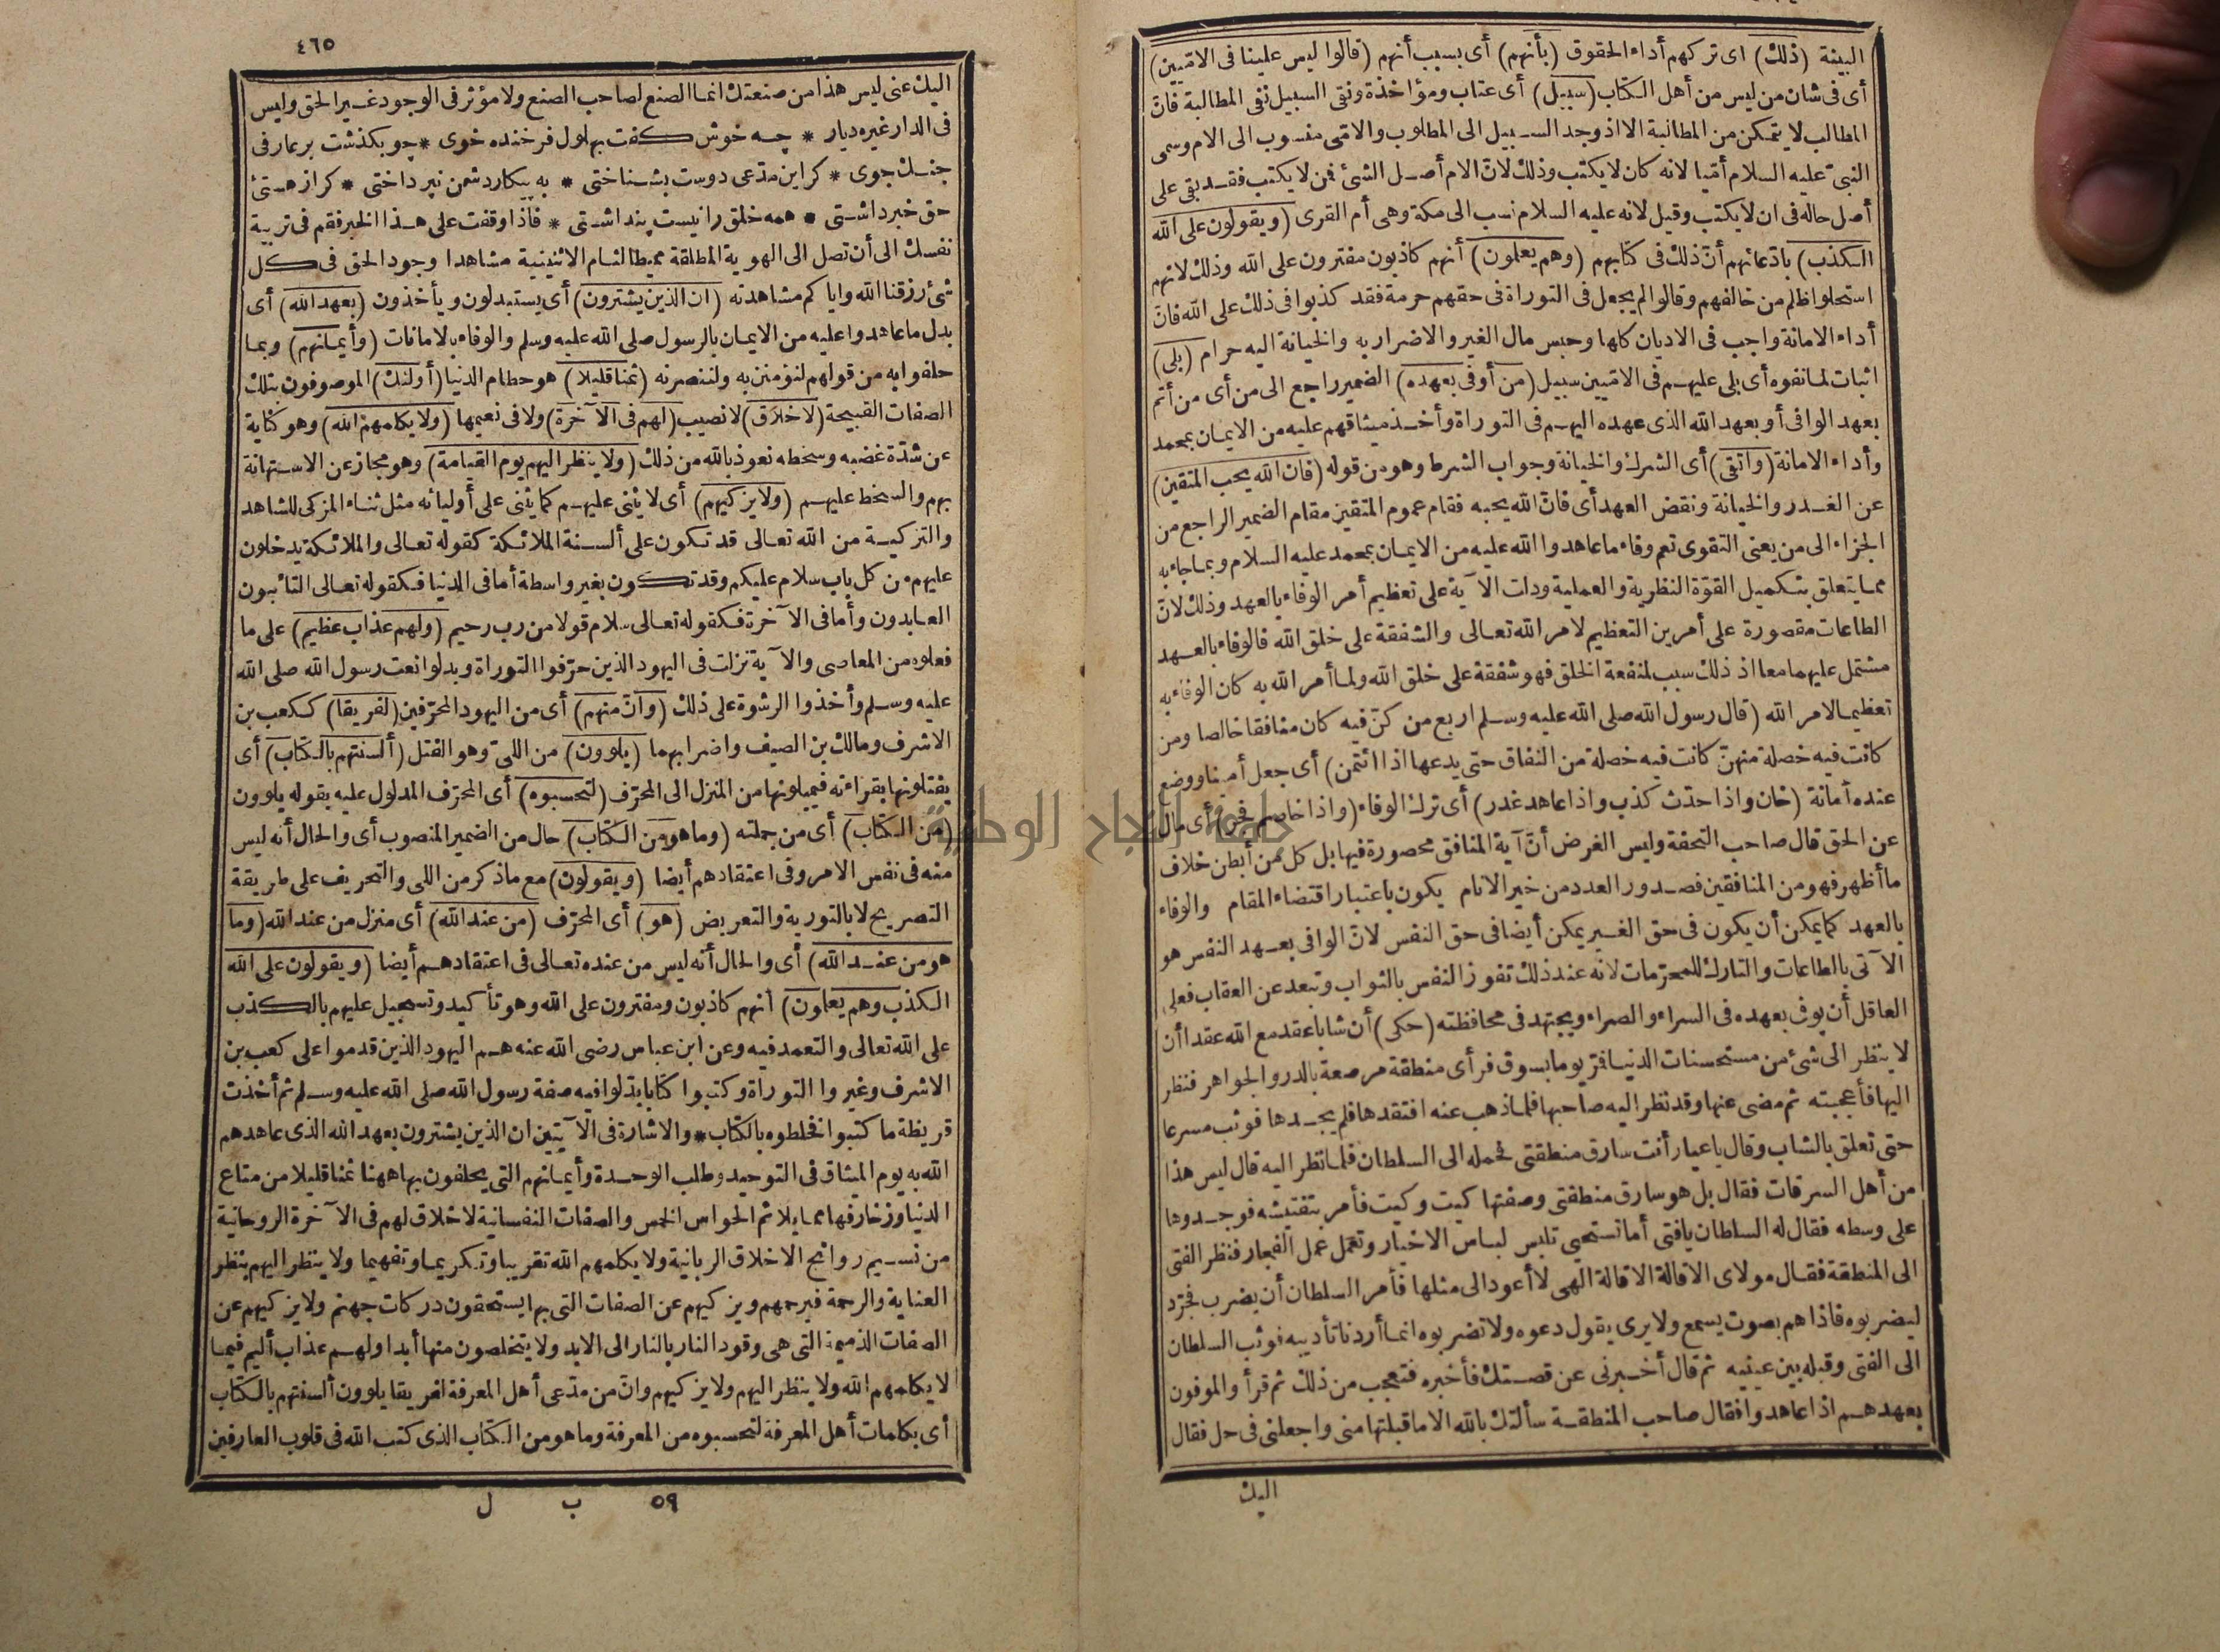 البينة (ذلك) اى تركهم أداء الحقوق (بأنهم) أى بسبب أنهم (قالوا ليس علينا فى الاميين)
أى فى شان من ليس من أهل الكتاب (سبيل) أى عتاب ومؤاخذة ونفى السبيل نفى المطالبة فان
المطالب لا يتمكن من المطالبة الا اذ وجد السبيل الى المطلوب والامى منسوب الى الام وسمى
النبى عليه السلام أميا لانه كان لا يكتب وذلك لان الام أصل الشئ فمن لا يكتب فقد بقى على
أصل حاله فى ان لا يكتب وقيل لانه عليه السلام نسب الى مكة وهى أم القرى (ويقولون على الله
الكذب) بادعائهم أن ذلك فى كتابهم (وهم يعلمون) أنهم كاذبون مفترون على الله وذلك لانهم
استحلوا ظلم من خالفهم وقالوا لم يجعل فى التوراة فى حقهم حرمة فقد كذبوا فى ذلك على الله فان
أداء الامانة واجب فى الاديان كلها وحبس مال الغير والاضرار به والخيانة اليه حرام (بلى)
اثبات لما نفوه أى بلى عليهم فى الاميين سبيل (من أوفى بعهده) الضمير راجع الى من أى من أتم
بعهد الوافى أو بعهد الله الذى عهده اليهم فى التوراة وأخذ ميثاقهم عليه من الايمان بمحمد
وأداء الامانة (واتقى) أى الشرك والخيانة وجواب الشرط وهو من قوله (فان الله يحب المتقين)
عن الغدر والخيانة ونقض العهد أى فان الله يحبه فقام عموم المتقين مقام الضمير الراجع من
الجزاء الى من يعنى التقوى تعم وفاء ما عاهدوا الله عليه من الايمان بمحمد عليه السلام وبما جاء به
مما يتعلق بتكميل القوّة النظرية والعملية ودلت الآية على تعظيم أمر الوفاء بالعهد وذلك لان
الطاعات مقصورة على أمرين التعظيم لامر الله تعالى والشفقة على خلق الله فالوفاء بالعهد
مشتمل عليهما معا اذ ذلك سبب لمنفعة الخلق فهو شفقة على خلق الله ولما أمر الله به كان الوفاء به
تعظيما لامر الله (قال رسول الله صلى الله عليه وسلم اربع من كنّ فيه كان منافقا خالصا ومن
كانت فيه خصلة منهنّ كانت فيه خصلة من النفاق حتى يدعها اذا ائتمن) أى جعل أمينا ووضع
عنده أمانة (خان واذا حدّث كذب واذا عاهد غدر) أى ترك الوفاء (واذا خاصم فجر) أى مال
عن الحق قال صاحب التحفة وليس الغرض أنّ آية المنافق محصورة فيها بل كل من أبطن خلاف
ما أظهر فهو من المنافقين فصدور العدد من خير الانام يكون باعتبار اقتضاء المقام والوفاء
بالعهد كما يمكن أن يكون فى حق الغير يمكن أيضا فى حق النفس لانّ الوافى بعهد النفس هو
الآتى بالطاعات والتارك للمحرّمات لانه عند ذلك تفوز النفس بالثواب وتبعد عن العقاب فعلى
العاقل أن يوفى بعهده فى السراء والضراء ويجتهد فى محافظته (حكى) أن شابا عقد مع الله عقدا أن
لا ينظر الى شئ من مستحسنات الدنيا فمرّ يوما بسوق فرأى منطقة مرصعة بالدر والجواهر فنظر
اليها فأعجبته ثم مضى عنها وقد نظر اليه صاحبها فلما ذهب عنه افتقدها فلم يجدها فوثب مسرعا
حتى تعلق بالشاب وقال يا عيار أنت سارق منطقتى فحمله الى السلطان فلما نظر اليه قال ليس هذا
من أهل السرقات فقال بل هو سارق منطقتى وصفتها كيت وكيت فأمر بتفتيشه فوجدوها
على وسطه فقال له السلطان يا فتى أما تستحيى تلبس لباس الاخيار وتعمل عمل الفجار فنظر الفتى
الى المنطقة فقال مولاى الاقالة الاقالة الهى لا أعود الى مثلها فأمر السلطان أن يضرب فجرّد
ليضربوه فاذا هم بصوت يسمع ولا يرى يقول دعوه ولا تضربوه انما أردنا تأديبه فوثب السلطان
الى الفتى وقبله بين عينيه ثم قال أخبرنى عن قصتك فأخبره فتعجب من ذلك ثم قرأ والموفون
بعهدهم اذا عاهدوا فقال صاحب المنطقة سألتك بالله الا ما قبلتها منى واجعلنى فى حل فقال
اليك
٤٦٥
اليك عنى ليس هذا من صنعتك انما الصنع لصاحب الصنع ولا مؤثر فى الوجود غير الحق وليس
فى الدار غيره ديار * چه خوش كفت بهلول فرخنده خوى * چو بكذشت بر عارفى
جنك جوى * كر اين مدّعى دوست بشناختى * به پيكار دشمن نپرداختى * كر از هستئ
حق خبر داشتى * همه خلق را نيست پنداشتى * فاذا وقفت على هذا الخبر فقم فى تربية
نفسك الى أن تصل الى الهوية المطلقة مميطا لثام الاثنينية مشاهدا وجود الحق فى كل
شئ رزقنا الله واياكم مشاهدته (ان الذين يشترون) أى يستبدلون ويأخذون (بعهد الله) أى
بدل ما عاهدوا عليه من الايمان بالرسول صلى الله عليه وسلم والوفاء بالامانات (وأيمانهم) وبما
حلفوا به من قولهم لنؤمنن به ولننصرنه (ثمنا قليلا) هو حطام الدنيا (أولئك) الموصوفون بتلك
الصفات القبيحة (لا خلاق) لا نصيب (لهم فى الآخرة) ولا فى نعيمها (ولا يكلمهم الله) وهو كناية
عن شدّة غضبه وسخطه نعوذ بالله من ذلك (ولا ينظر اليهم يوم القيامة) وهو مجاز عن الاستهانة
بهم والسخط عليهم (ولا يزكيهم) أى لا يثنى عليهم كما يثنى على أوليائه مثل ثناء المزكى للشاهد
والتزكية من الله تعالى قد تكون على ألسنة الملائكة كقوله تعالى والملائكة يدخلون
عليهم من كل باب سلام عليكم وقد تكون بغير واسطة أما فى الدنيا فكقوله تعالى التائبون
العابدون وأما فى الآخرة فكقوله تعالى سلام قولا من رب رحيم (ولهم عذاب عظيم) على ما
فعلوه من المعاصى والآية نزلت فى اليهود الذين حرّفوا التوراة وبدلوا نعت رسول الله صلى الله
عليه وسلم وأخذوا الرشوة على ذلك (وانّ منهم) أى من اليهود المحرّفين (لفريقا) ككعب بن
الاشرف ومالك بن الصيف واضرابهما (يلوون) من اللىّ وهو الفتل (ألسنتهم بالكتاب) أى
يفتلونها بقراءته فيميلونها من المنزل الى المحرّف (لتحسبوه) أى المحرّف المدلول عليه بقوله يلوون
(من الكتاب) أى من جملته (وما هو من الكتاب) حال من الضمير المنصوب أى والحال أنه ليس
منه فى نفس الامر وفى اعتقادهم أيضا (ويقولون) مع ما ذكر من اللى والتحريف على طريقة
التصريح لا بالتورية والتعريض (هو) أى المحرّف (من عند الله) أى منزل من عند الله (وما
هو من عند الله) أى والحال أنه ليس من عنده تعالى فى اعتقادهم أيضا (ويقولون على الله
الكذب وهم يعلمون) أنهم كاذبون ومفترون على الله وهو تأكيد وتسجيل عليهم بالكذب
على الله تعالى والتعمد فيه وعن ابن عباس رضى الله عنه هم اليهود الذين قدموا على كعب بن
الاشرف وغيروا التوراة وكتبوا كتابا بدّلوا فيه صفة رسول الله صلى الله عليه وسلم ثم أخذت
قريظة ما كتبوا فخلطوه بالكتاب * والاشارة فى الآيتين ان الذين يشترون بعهد الله الذى عاهدهم
الله به يوم الميثاق فى التوحيد وطلب الوحدة وأيمانهم التى يحلفون بها ههنا ثمنا قليلا من متاع
الدنيا وزخارفها مما يلائم الحواس الخمس والصفات النفسانية لا خلاق لهم فى الآخرة الروحانية
من نسيم روائح الاخلاق الربانية ولا يكلمهم الله تقريبا وتكريما وتفهيما ولا ينظر اليهم بنظر
العناية والرحمة فيرحمهم ويزكيهم عن الصفات التى بها يستحقون دركات جهنم ولا يزكيهم عن
الصفات الذميمة التى هى وقود النار بالنار الى الابد ولا يتخلصون منها أبدا ولهم عذاب أليم فيما
لا يكلمهم الله ولا ينظر اليهم ولا يزكيهم وانّ من مدّعى أهل المعرفة لفريقا يلوون ألسنتهم بالكتاب
أى بكلمات أهل المعرفة لتحسبوه من المعرفة وما هو من الكتاب الذى كتب الله فى قلوب العارفين
٥٩ ب ل
جامعة النجاح الوطنية